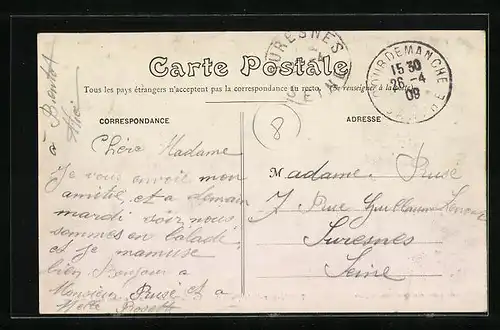 SURESNES
Carte Postale
COURDEMANCHE
15 30
26 - 4
09
Tous les pays étrangers n'acceptent pas la correspondance au recto. (Se renseigner à la poste)
CORRESPONDANCE
ADRESSE
8
à Bientôt
Chère Madame
Je vous envoie mon
amitié, et a demain
mardi soir nous
sommes en balade
et je mamuse
bien Bonjour a
Monsieur Ruisé et a
Madame Ruisé
7 Rue Guillaume
Suresnes
Seine